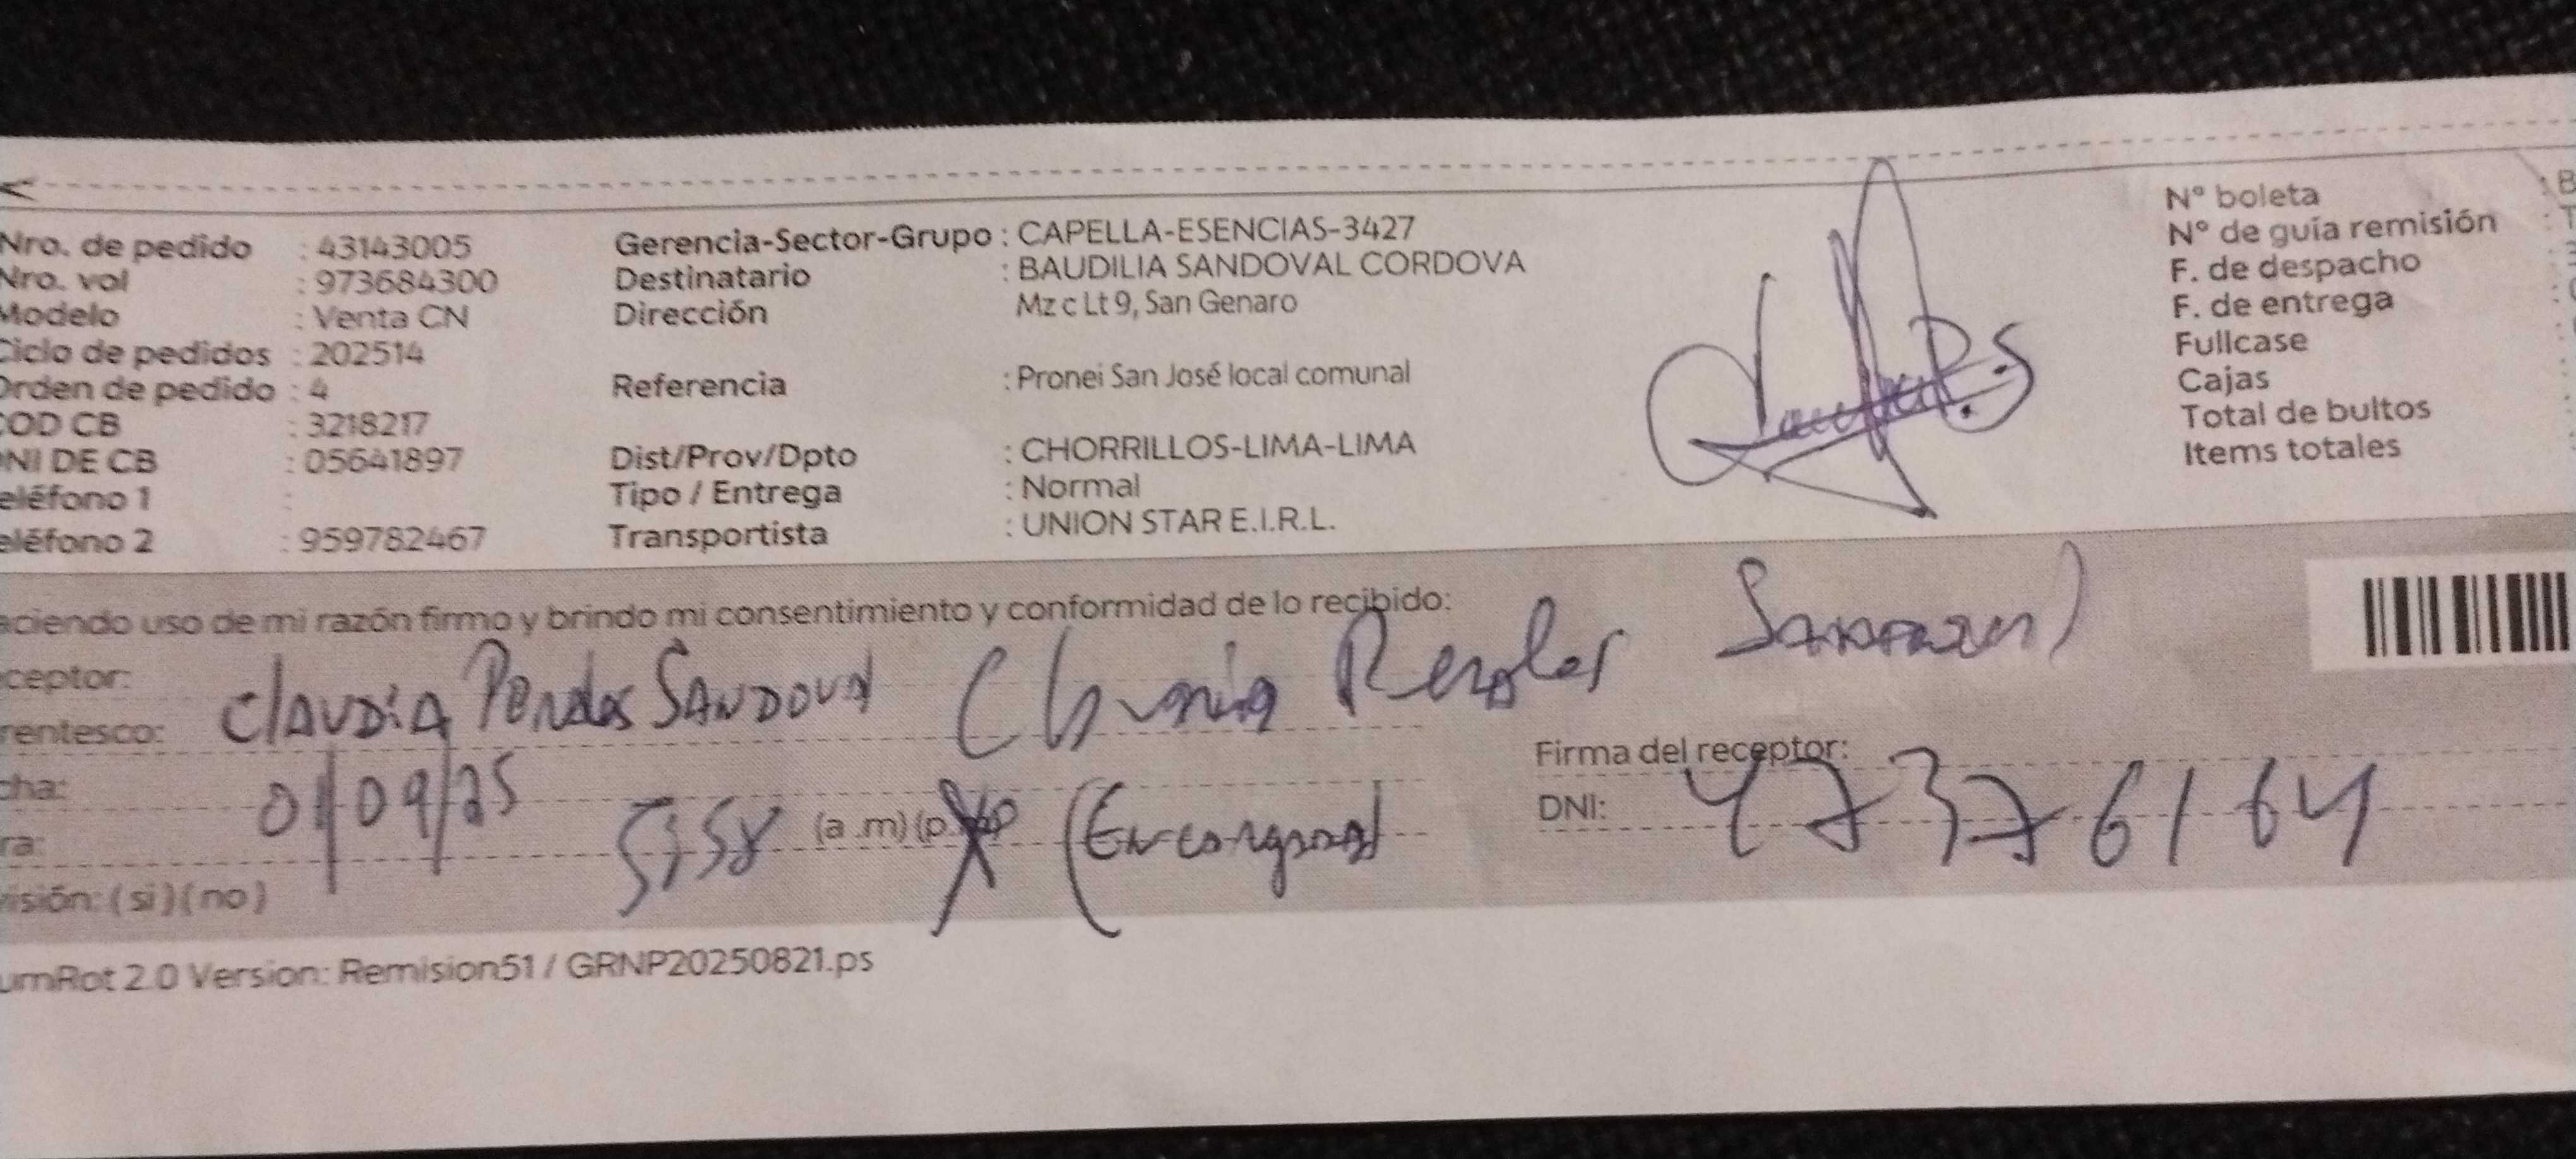 Nro. de pedido : 43143005
Nro. vol : 973684300
Modelo : Venta CN
Ciclo de pedidos : 202514
Orden de pedido : 4
COD CB : 3218217
NI DE CB : 05641897
eléfono 1 :
eléfono 2 : 959782467
Gerencia-Sector-Grupo : CAPELLA-ESENCIAS-3427
Destinatario : BAUDILIA SANDOVAL CORDOVA
Dirección Mz c Lt 9, San Genaro
Referencia : Pronei San José local comunal
Dist/Prov/Dpto : CHORRILLOS-LIMA-LIMA
Tipo / Entrega : Normal
Transportista : UNION STAR E.I.R.L.
N° boleta : B
N° de guía remisión : T
F. de despacho
F. de entrega
Fullcase
Cajas
Total de bultos
Items totales
aciendo uso de mi razón firmo y brindo mi consentimiento y conformidad de lo recibido:
ceptor:
rentesco: CLAUDIA SANDOVAL
cha: 01/09/25
ra: (a.m)(p
isión: (si)(no)
Firma del receptor:
DNI: 47376164
umRot 2.0 Version: Remision51 / GRNP20250821.ps